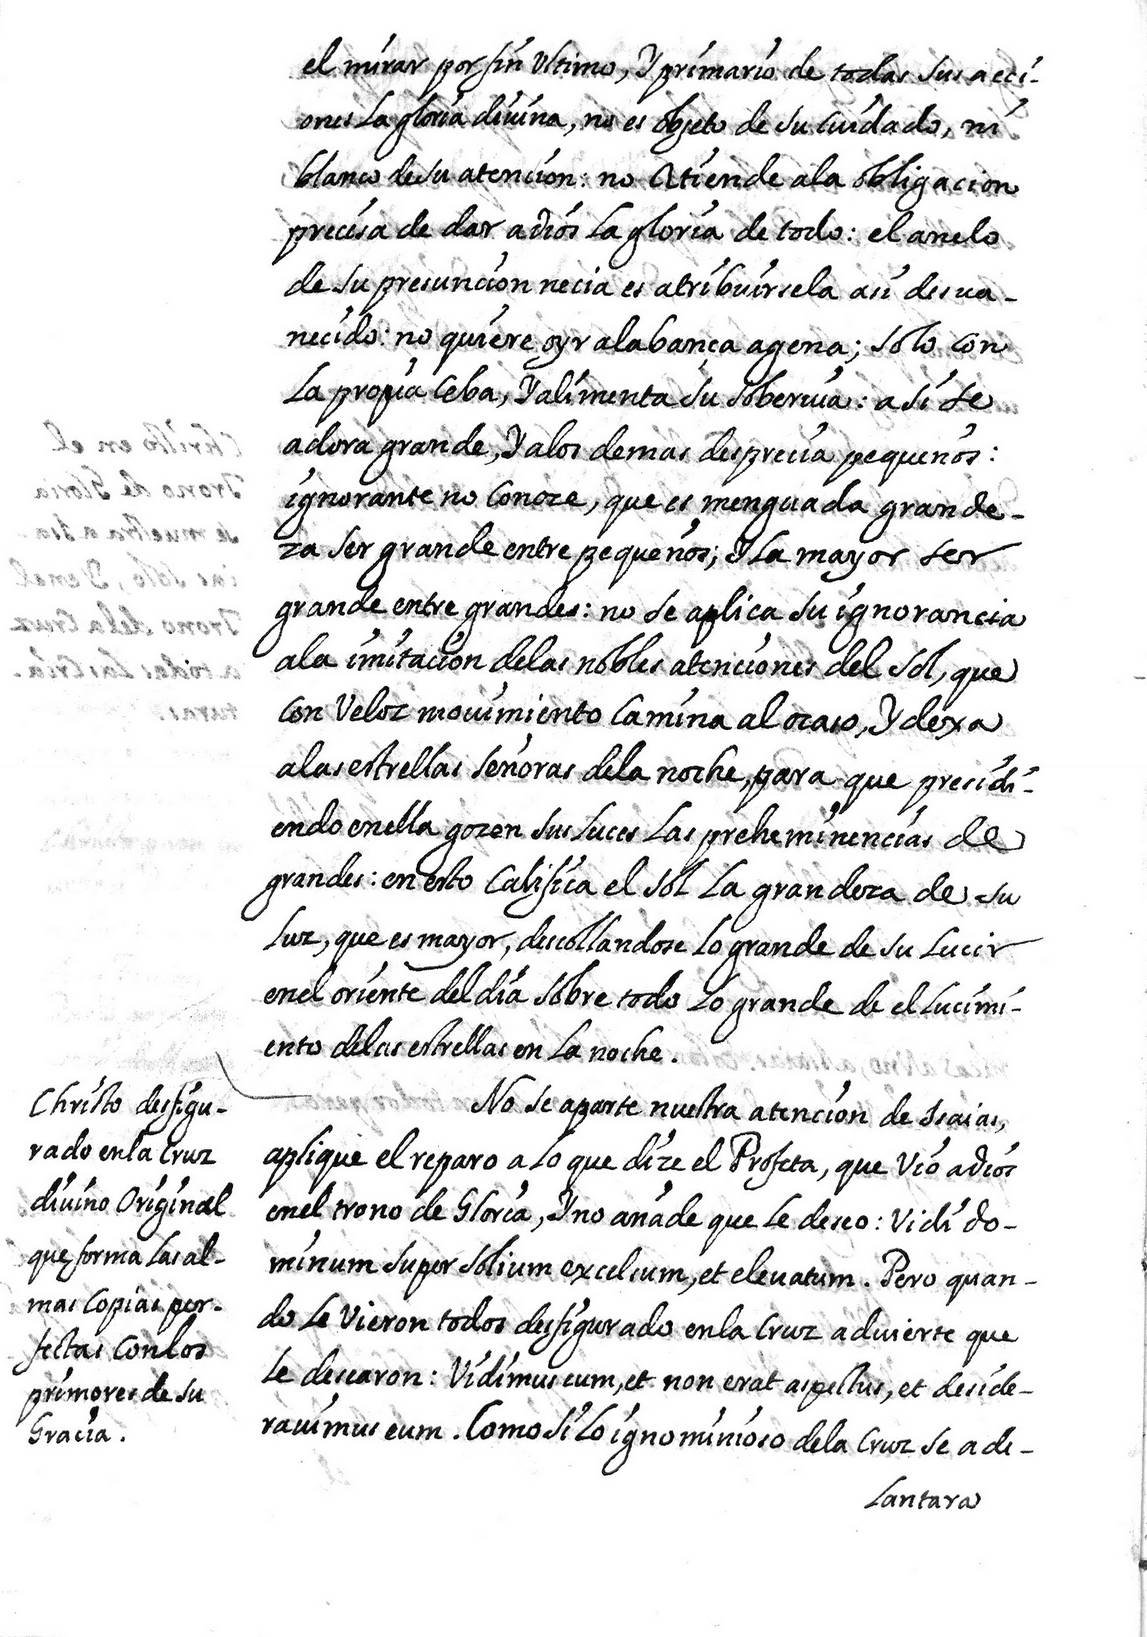 el mirar por fin Ultimo, Y primario de todas sus acci-
ones La gloria divina, no es objeto de su cuidado, ni
blanco de su atencion: no Atiende ala obligacion
precisa de dar adios La gloria de todo: el anelo
de su presuncion necia es atribuirsela asi desva-
necido: no quiere oyr alabança agena; solo con
La propia Ceba, Y alimenta su soberuia: a si se
adora grande, Y alos demas desprecia pequenos:
ignorante no Conoze, que es menguada grande-
za ser grande entre pequenos; Y La mayor ser
grande entre grandes: no se aplica su ignorancia
ala imitacion delas nobles atenciones del Sol, que
Con Veloz mouimiento Camina al ocaso, Y dexa
alas estrellas señoras dela noche, para que presidi-
endo enella gozen sus luces Las preheminencias de
grandes: en esto Califica el Sol La grandeza de su
Luz, que es mayor, descollandose Lo grande de su Lucir
enel oriente del dia sobre todo Lo grande de el Lucimi-
ento delas estrellas en La noche.
No se aparte nuestra atencion de Isaias,
aplique el reparo a Lo que dize el Profeta, que Vio adios
enel trono de Gloria, Y no añade que Le deseo: Vidi do-
minum super solium excelsum, et eleuatum. Pero quan-
do Le Vieron todos desfigurado enla Cruz aduierte que
Le desearon: Vidimus eum, et non erat aspectus, et deside-
rauimus eum. Como si Lo ignominioso dela Cruz se ade-
Lantara
Christo desfigu-
rado enla Cruz
diuino Original
que forma Las al-
mas Copias per-
fectas Con Los
primores de su
Gracia.